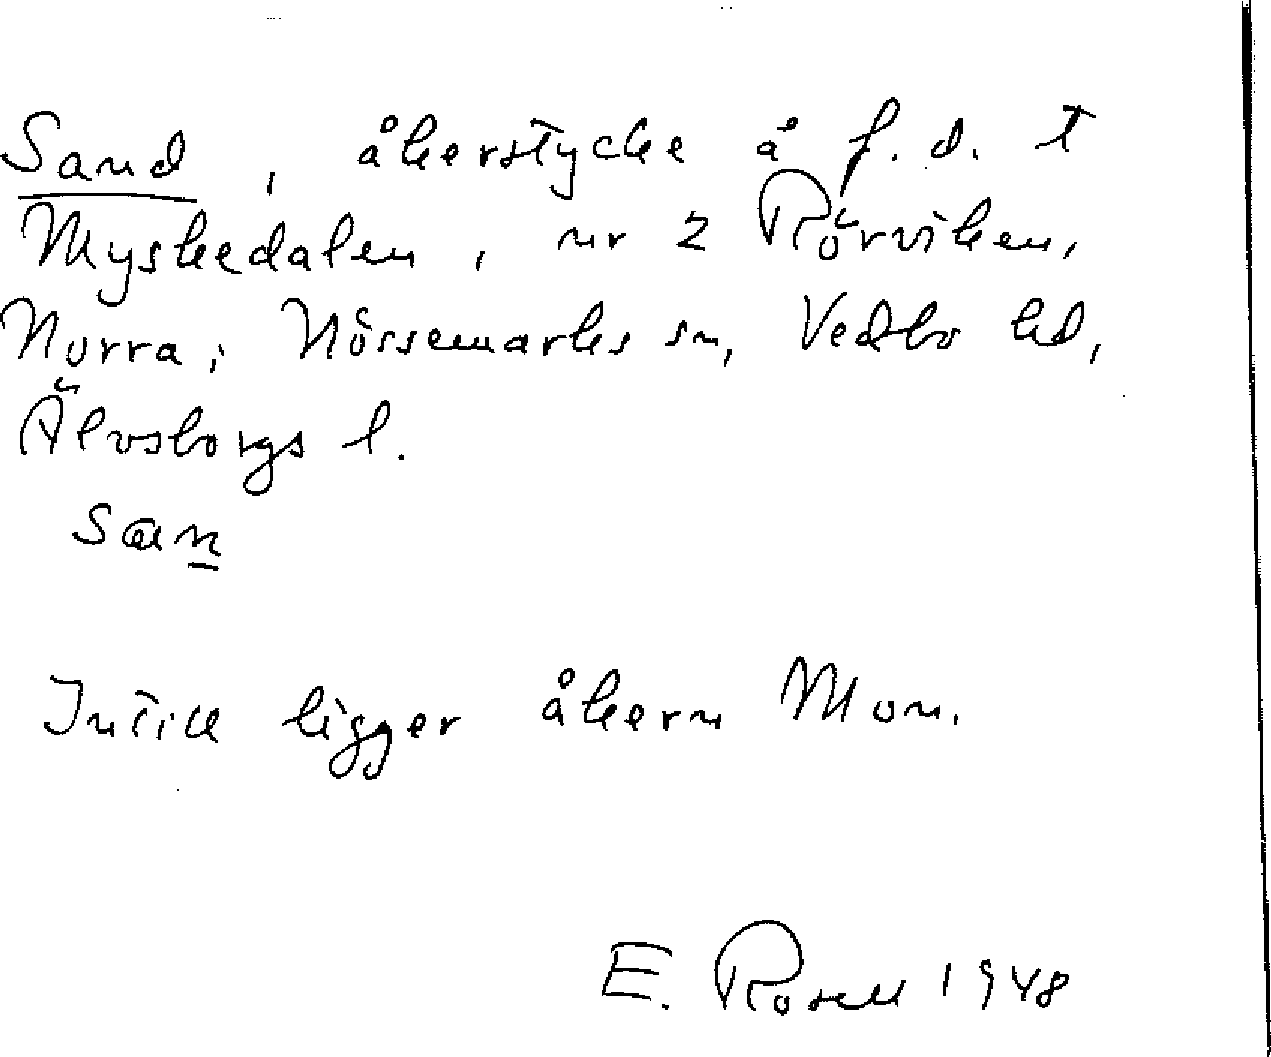 Sand, åkerstycke å f.d. t
Myskedalen, nr 2 Rörviken,
Norra, Nössemarks sn, Vedbo hd,
Älvsborgs l.
san
Intill ligger åkern Mon.
E. Rosell 1948